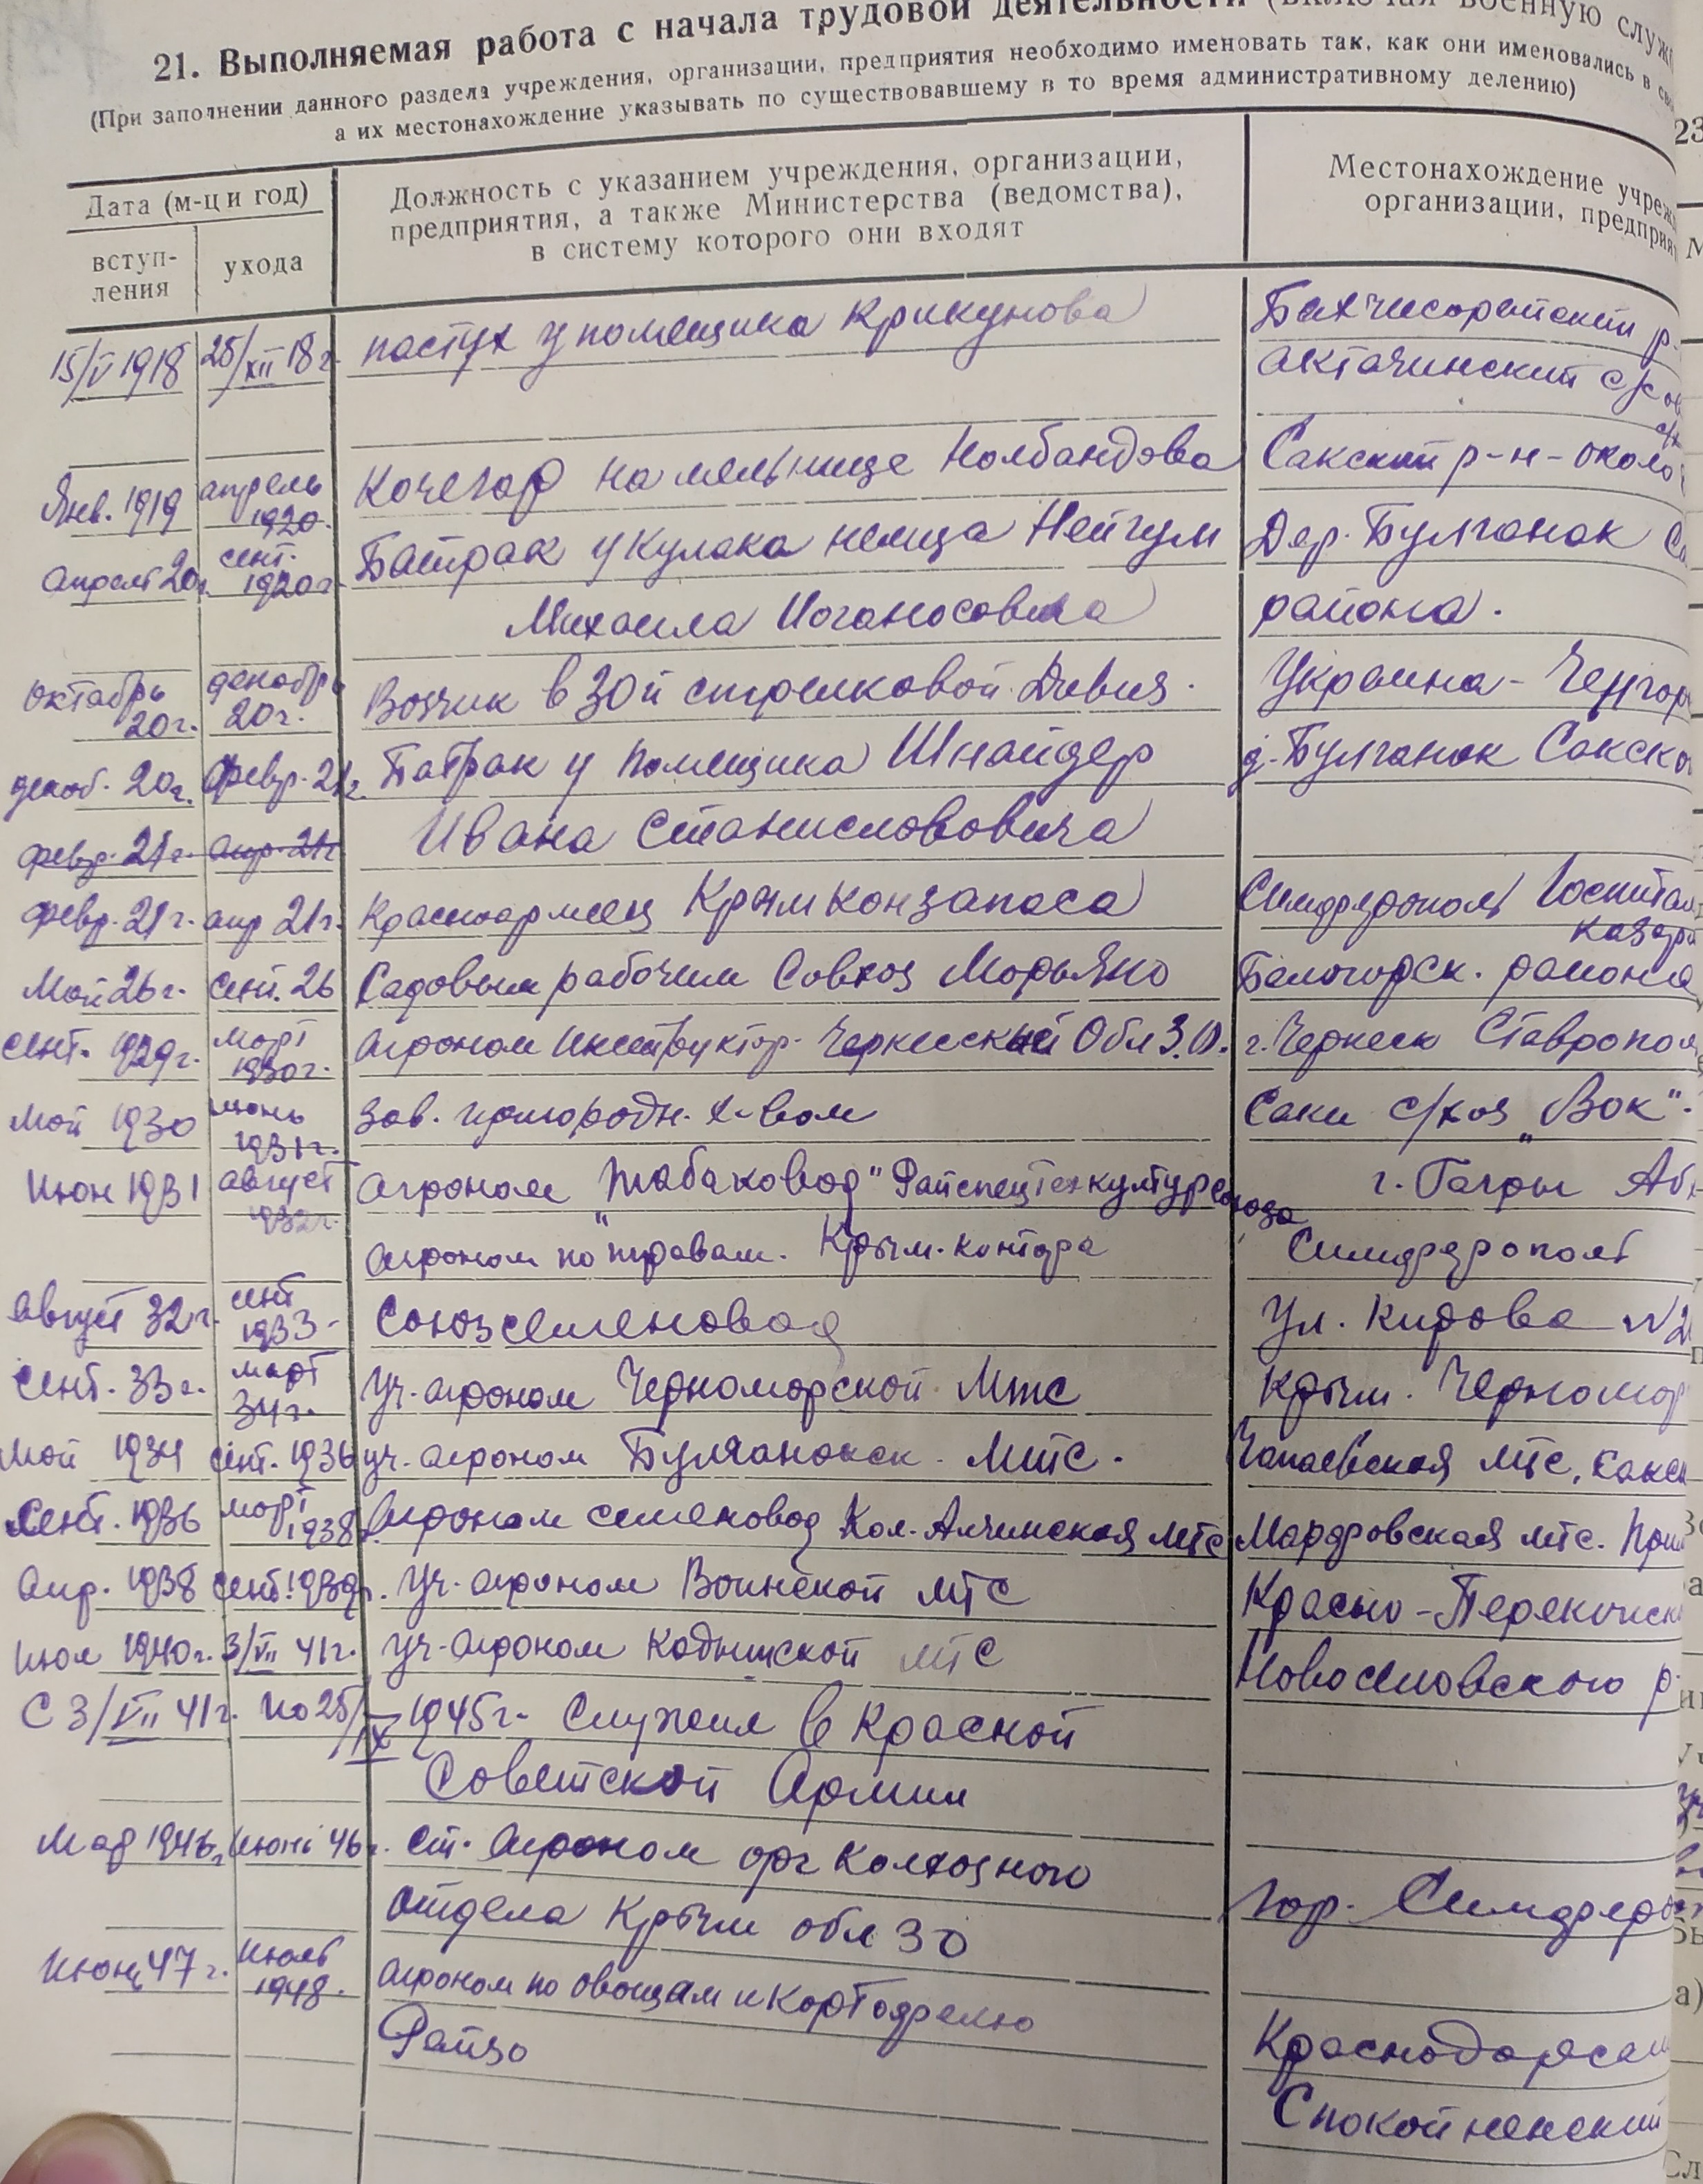 21. Выполняемая работа с начала трудовой деятельности (включая военную служ
(При заполнении данного раздела учреждения, организации, предприятия необходимо именовать так, как они именовались в св
а их местонахождение указывать по существовавшему в то время административному делению)
Дата (м-ц и год)
вступ-
ления
ухода
Должность с указанием учреждения, организации,
предприятия, а также Министерства (ведомства),
в систему которого они входят
Местонахождение учреж
организации, предприя
15/V 1918 25/XII 18 г. пастух у помещика Крикунова Бахчисарайский р-
Актачинский с/сов
Янв. 1919 апрель 1920 Кочегар на мельнице Налбандова Сакский р-н - около
Апрель 20 г. сент. 1920 г. Батрак у кулака немца Нейгум Дер. Булганак
Михаила района.
Октябрь 20 г. декабрь 20 г. Возчик в 30й стрелковой Дивиз. Украина -
декаб. 20 г. февр. 21 г. Батрак у помещика Шнайдер д. Булганак Сакско
февр. 21 г. апр. 21 г. Ивана Станиславовича
февр. 21 г. апр 21 г. Красноармеец Крымконзапаса Симферополь Госпитал
казар
Май 26 г. сент. 26 Садовым рабочим Совхоз Марьяно Белогорск. района
Сент. 1929 г. март 1930 г. Агроном инструктор Черкесский Обл З.О. г. Черкеск Ставропол
Май 1930 июнь 1931 г. Зав. пригородн. х-вом Саки с/хоз „Вок".
Июн 1931 август 1932 г. Агроном „Табаковод" Райспецтехкультурсоюза г. Гагры Аб
Агроном по травам. Крым. контора Симферополь
Август 32 г. сент 1933 Союзсеменовод ул. Кирова №2
Сент. 33 г. март 34 г. Уч. агроном Черноморской Мтс Крым. Черномор
Май 1934 сент. 1936 уч. агроном Булганакск. МТС. Чапаевская мтс, Сакск
Сент. 1936 март 1938 г. Агроном семеновод Мтс мтс.
Апр. 1938 сент. 1939 г. Уч. агроном Воинской МТС Красно-Перекопск
Июл 1940 г. 3/VII 41 г. Уч. агроном Кадышской МТС Новоселовского р-
С 3/VII 41 г. по 25/IX 1945 г. Служил в Красной
Советской Армии
1946 г. Июнь 46 г. Ст. Агроном орг колхозного
отдела Крым обл ЗО гор. Симферо
Июнь 47 г. Июль 1948. Агроном по овощам и картофелю
Райзо
Спокойненский